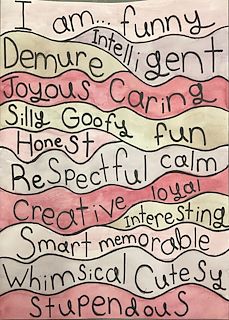 I am... funny
Intelligent
Demure
Joyous Caring
Silly Goofy fun
Honest
Respectful calm
Creative loyal
Interesting
Smart memorable
Whimsical Cutesy
Stupendous